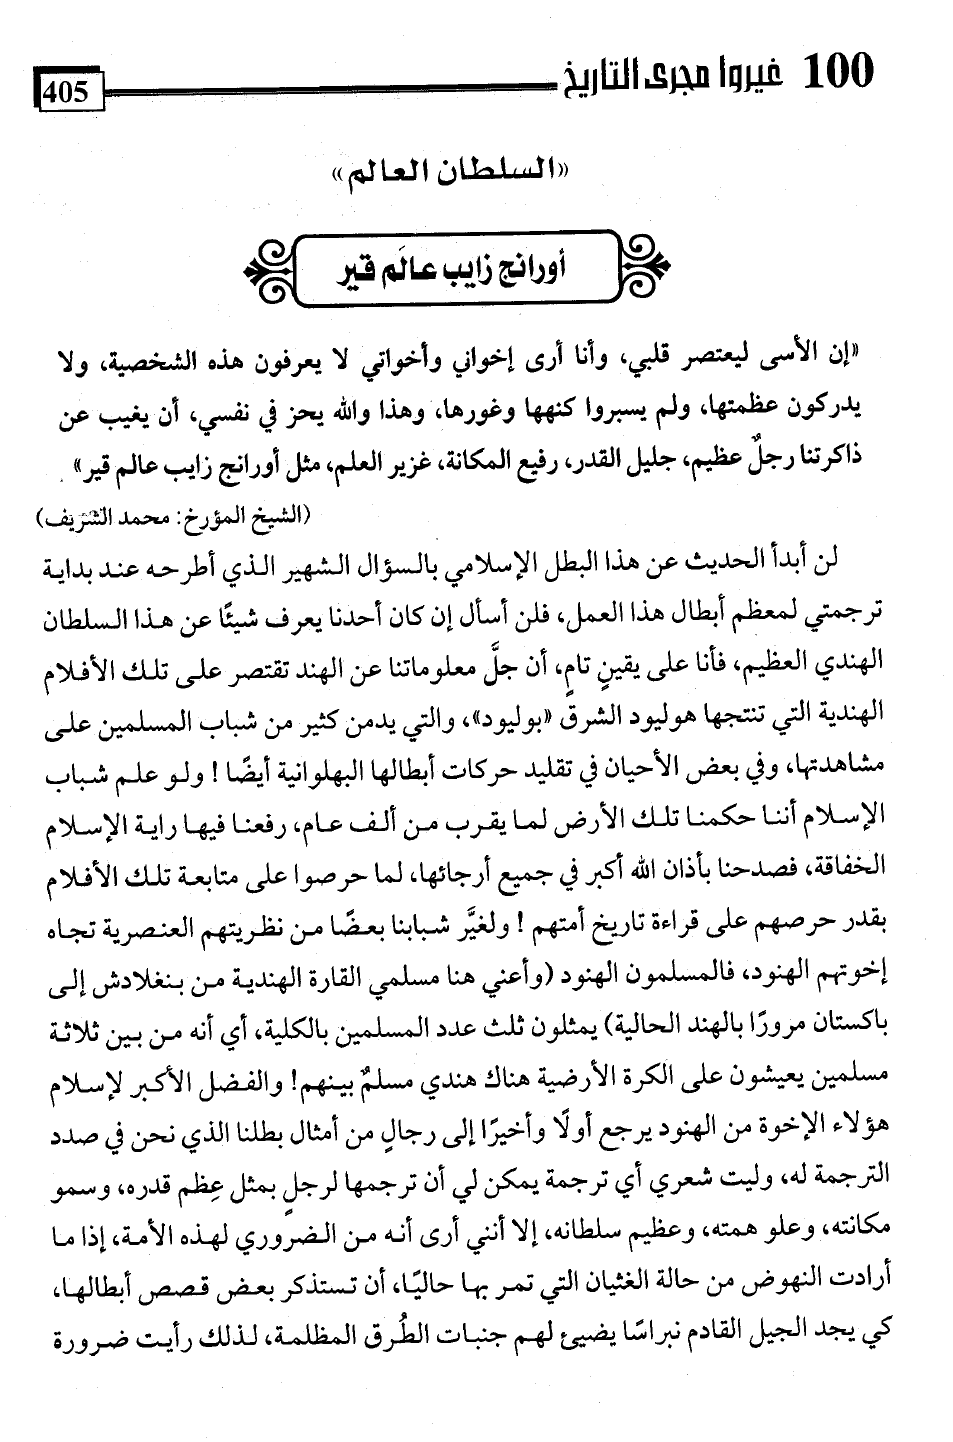 100 غيروا مجرى التاريخ
405
«السلطان العالم»
أورانج زايب عالَم قير
«إن الأسى ليعتصر قلبي، وأنا أرى إخواني وأخواتي لا يعرفون هذه الشخصية، ولا
يدركون عظمتها، ولم يسبروا كنهها وغورها، وهذا والله يحز في نفسي، أن يغيب عن
ذاكرتنا رجلٌ عظيم، جليل القدر، رفيع المكانة، غزير العلم، مثل أورانج زايب عالم قير».
(الشيخ المؤرخ: محمد الشريف)
لن أبدأ الحديث عن هذا البطل الإسلامي بالسؤال الشهير الذي أطرحه عند بداية
ترجمتي لمعظم أبطال هذا العمل، فلن أسأل إن كان أحدنا يعرف شيئًا عن هذا السلطان
الهندي العظيم، فأنا على يقينٍ تامٍ، أن جلَّ معلوماتنا عن الهند تقتصر على تلك الأفلام
الهندية التي تنتجها هوليود الشرق «بوليود»، والتي يدمن كثير من شباب المسلمين على
مشاهدتها، وفي بعض الأحيان في تقليد حركات أبطالها البهلوانية أيضًا ! ولو علم شباب
الإسلام أننا حكمنا تلك الأرض لما يقرب من ألف عام، رفعنا فيها راية الإسلام
الخفاقة، فصدحنا بأذان الله أكبر في جميع أرجائها، لما حرصوا على متابعة تلك الأفلام
بقدر حرصهم على قراءة تاريخ أمتهم ! ولغيَّر شبابنا بعضًا من نظريتهم العنصرية تجاه
إخوتهم الهنود، فالمسلمون الهنود (وأعني هنا مسلمي القارة الهندية من بنغلادش إلى
باكستان مرورًا بالهند الحالية) يمثلون ثلث عدد المسلمين بالكلية، أي أنه من بين ثلاثة
مسلمين يعيشون على الكرة الأرضية هناك هندي مسلمٌ بينهم! والفضل الأكبر لإسلام
هؤلاء الإخوة من الهنود يرجع أولًا وأخيرًا إلى رجالٍ من أمثال بطلنا الذي نحن في صدد
الترجمة له، وليت شعري أي ترجمة يمكن لي أن ترجمها لرجلٍ بمثل عِظم قدره، وسمو
مكانته، وعلو همته، وعظيم سلطانه، إلا أنني أرى أنه من الضروري لهذه الأمة، إذا ما
أرادت النهوض من حالة الغثيان التي تمر بها حاليًا، أن تستذكر بعض قصص أبطالها،
كي يجد الجيل القادم نبراسًا يضيئ لهم جنبات الطُرق المظلمة، لذلك رأيت ضرورة